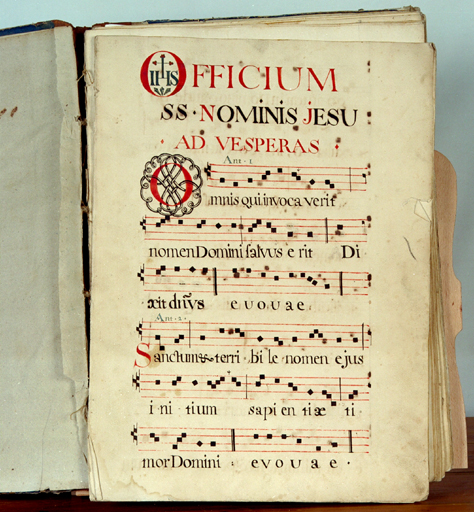 OFFICIUM
SS · NOMINIS JESU
AD VESPERAS
Ant · 1
Omnis qui invoca verit
nomen Domini salvus e rit Di
xit dñus e v o v a e
Ant · 2 ·
Sanctum & terri bi le nomen ejus
i ni tium sapi en tiæ ti
mor Domini : e v o v a e ·